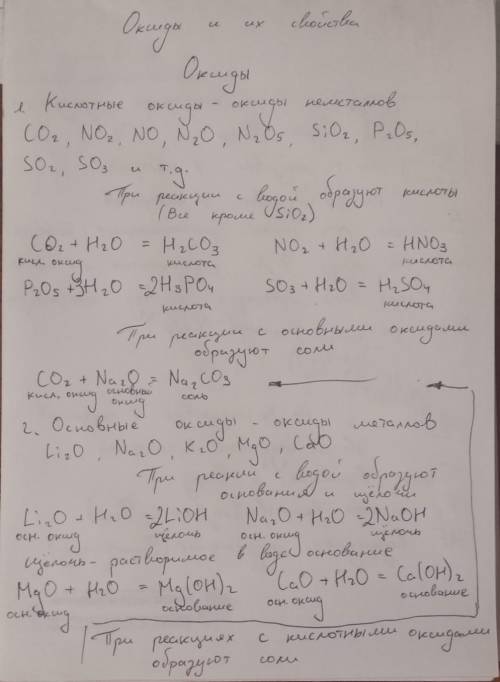 Оксиды и их свойства
Оксиды
1. Кислотные оксиды - оксиды неметаллов
CO2, NO2, NO, N2O, N2O5, SiO2, P2O5,
SO2, SO3 и т.д.
При реакции с водой образуют кислоты
(Все кроме SiO2)
CO2 + H2O = H2CO3 NO2 + H2O = HNO3
кисл. оксид кислота кислота
P2O5 + 3H2O = 2H3PO4 SO3 + H2O = H2SO4
кислота кислота
При реакции с основными оксидами
образуют соли
CO2 + Na2O = Na2CO3
кисл. оксид основный соль
оксид
2. Основные оксиды - оксиды металлов
Li2O, Na2O, K2O, MgO, CaO
При реакии с водой образуют
основания и щёлочи
Li2O + H2O = 2LiOH Na2O + H2O = 2NaOH
осн. оксид щёлочь осн. оксид щёлочь
Щёлочь - растворимое в воде основание
MgO + H2O = Mg(OH)2 CaO + H2O = Ca(OH)2
осн. оксид основание осн. оксид основание
При реакциях с кислотными оксидами
образуют соли